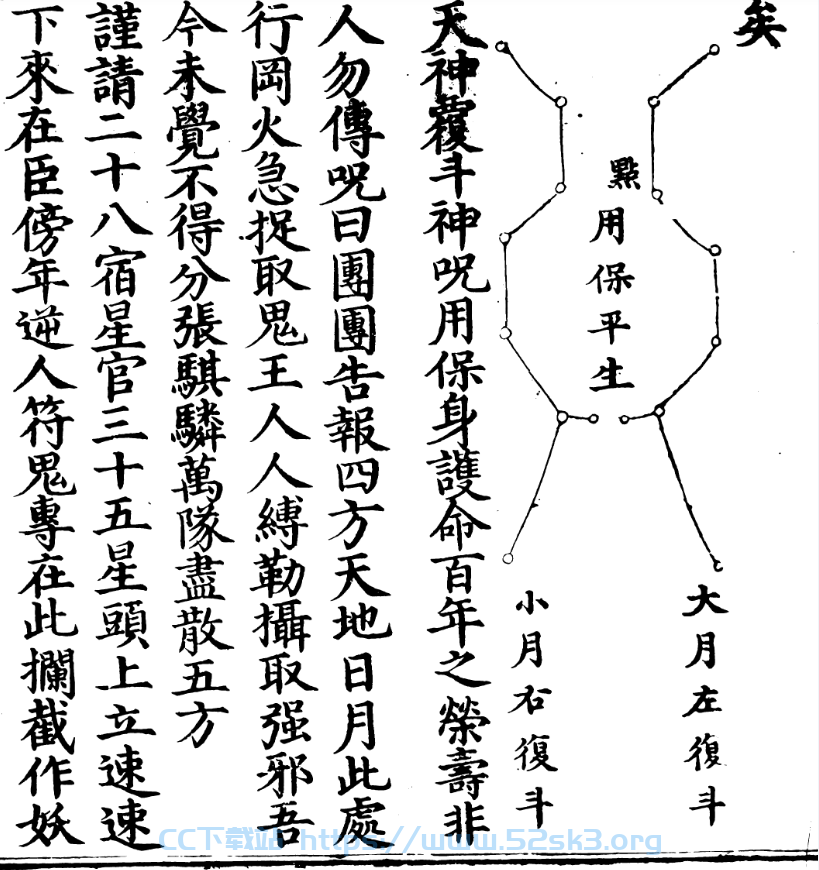 矣
大月左復斗
點用保平生
小月右復斗
天神覆斗神呪用保身護命百年之榮壽非
人勿傳呪曰團團告報四方天地日月此處
行罡火急捉取鬼王人人縛勒攝取强邪吾
今未覺不得分張騏驎萬隊盡散五方
謹請二十八宿星官三十五星頭上立速速
下來在臣傍年逆人符鬼專在此攔截作妖
CC下载站 https://www.52sk3.org